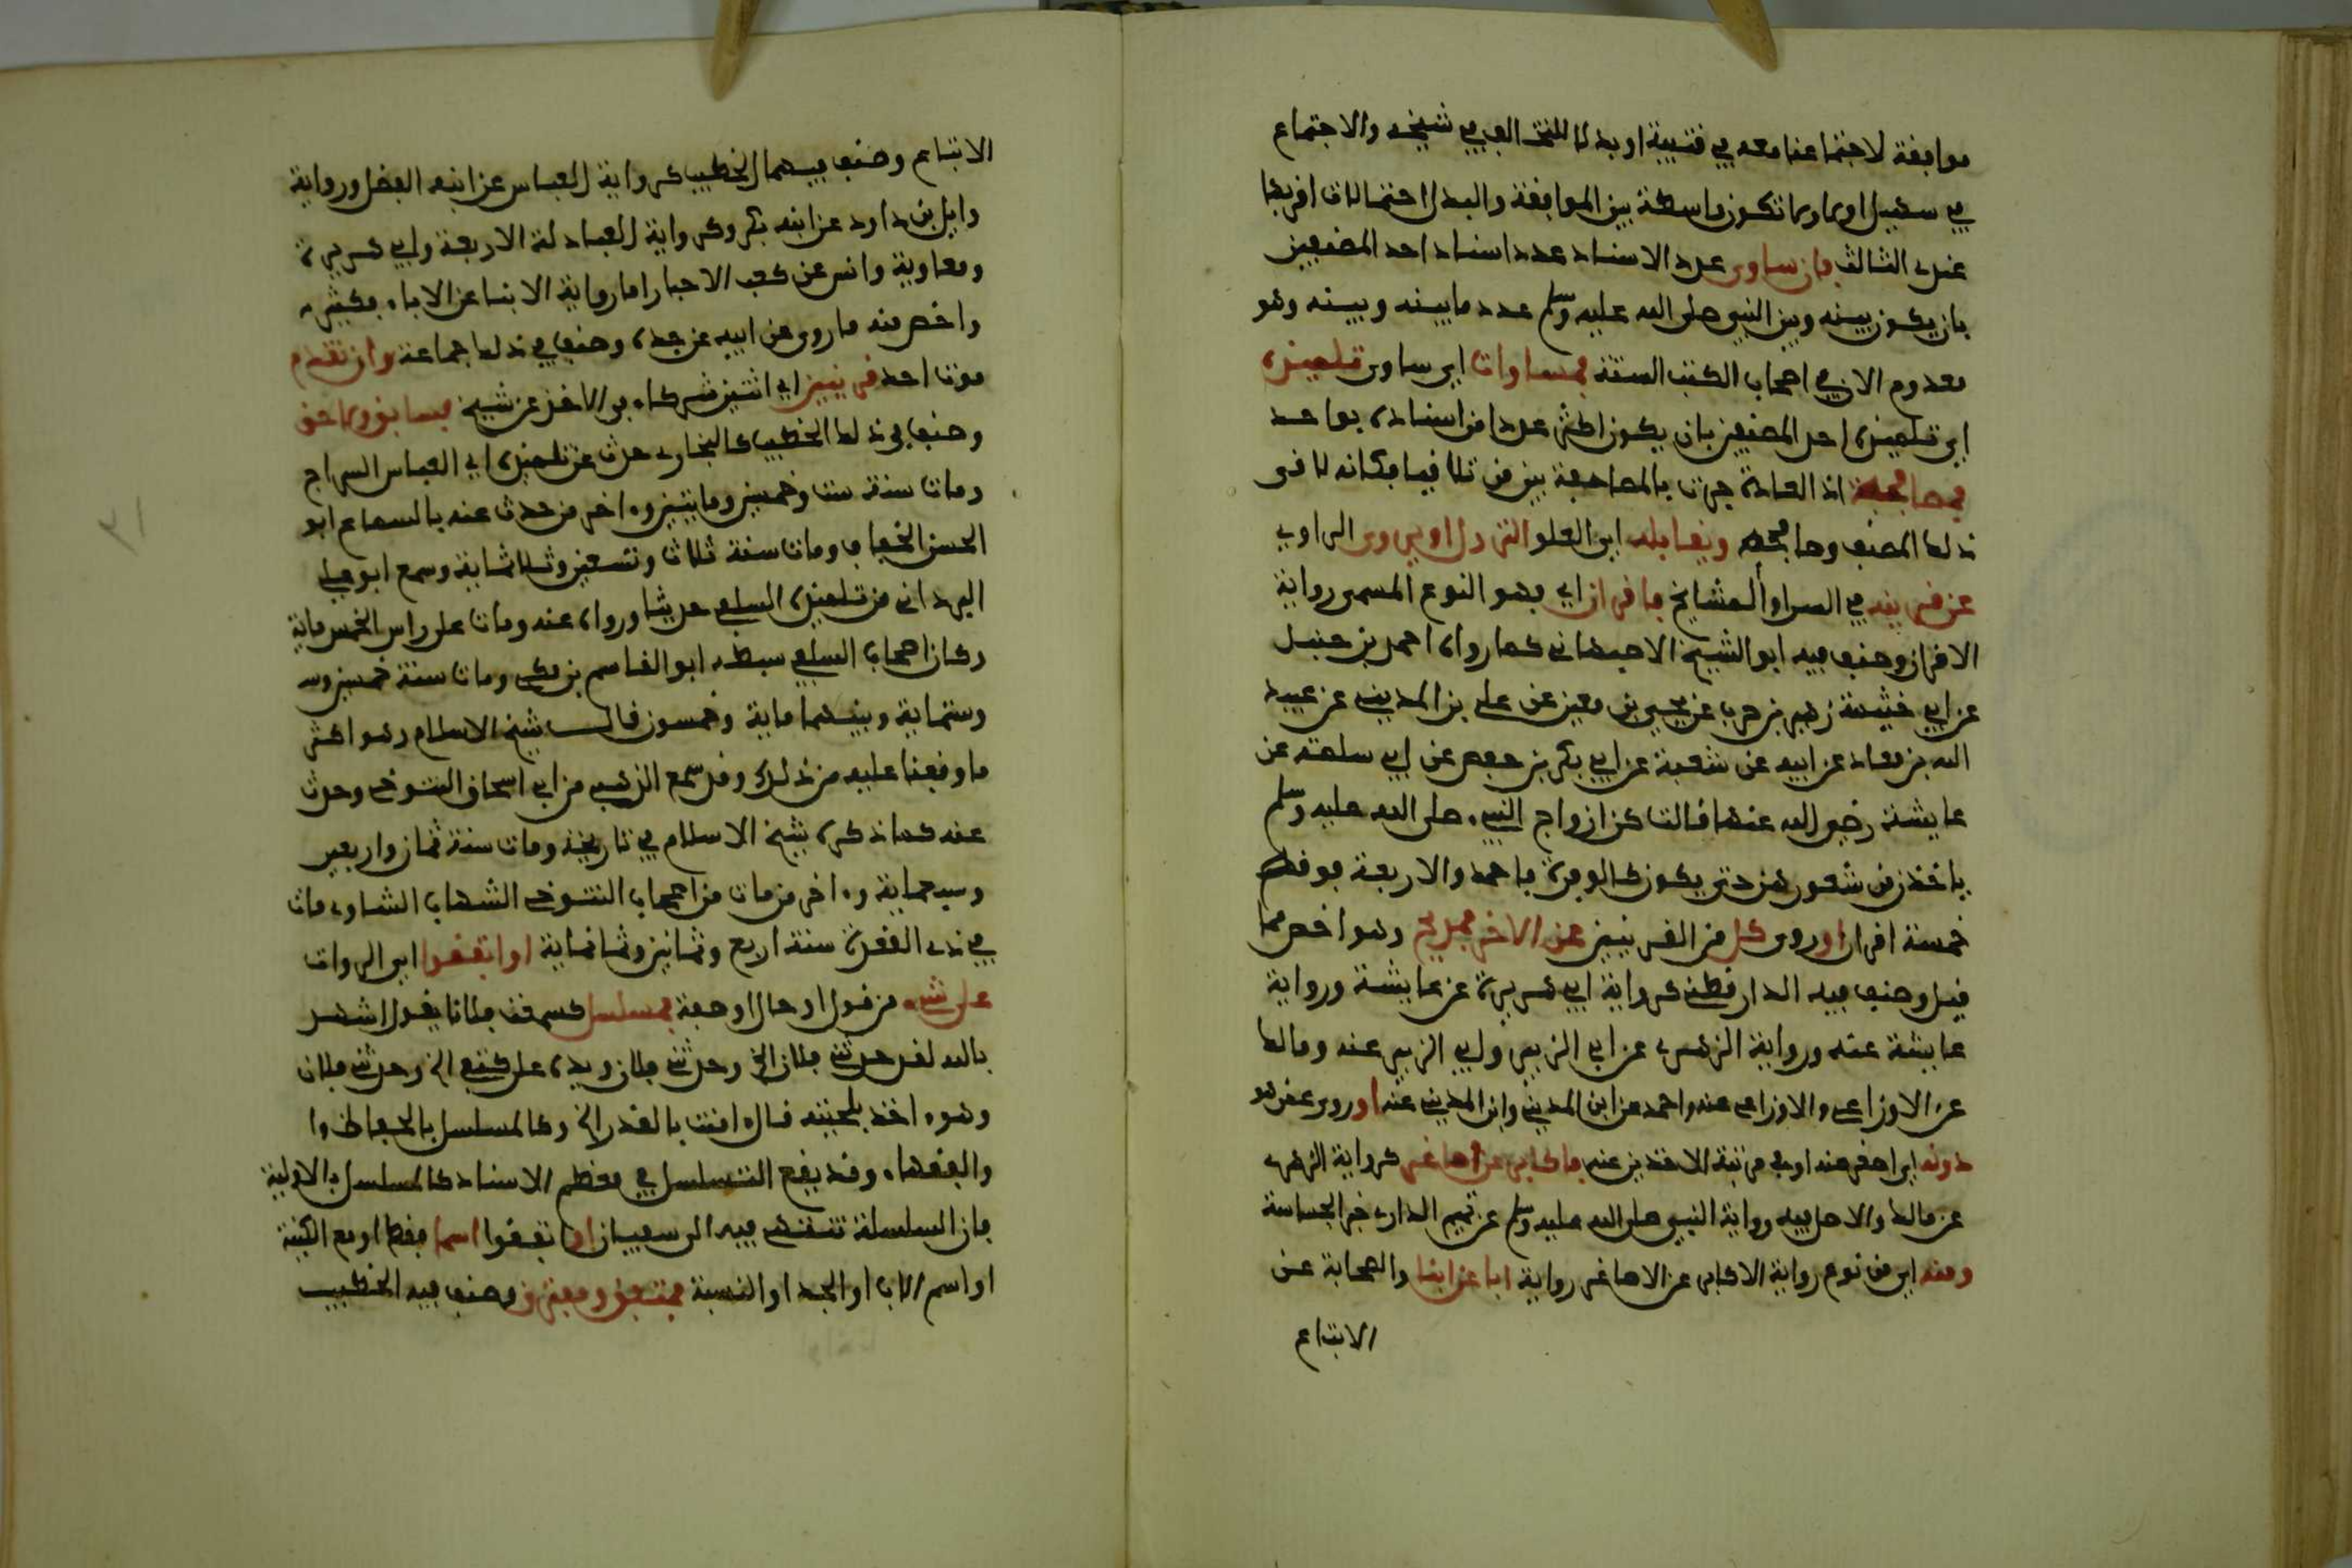 موافقة لاجتماعنا معه في قتيبة او بدلا للتخالف في شيخه والاجتماع
في سهيل او بما دربما تكون واسطة بين الموافقة والبدل احتمالات اقربها
عندى الثالث فان ساوى عدد الاسناد عدد اسناد احد المصنفين
بان يكون بينه وبين النبي صلى الله عليه وسلم عدد ما بينه وبينه وهو
معدوم الان في اصحاب الكتب الستة فمساوات اي ساوى تلميذه
اي تلميذه احد المصنفين بان يكون اكثر عددا من اسناده بواحد
فمصافحة اذ العادة جرت بالمصافحة بين من تلاقيا فكانه لاقى
ذلك المصنف وصافحه ويقابله اي العلو النزول اوروى الراوي
عن قرينه في السن او المشايخ فاقران اي فهو النوع المسمى رواية
الاقران وصنف فيه ابو الشيخ الاصبهاني كما رواه احمد بن حنبل
عن ابي خيثمة زهير بن حرب عن يحيى بن معين عن علي بن المديني عن عبيد
الله بن معاذ عن ابيه عن شعبة عن ابي بكر بن حفص عن ابي سلمة عن
عايشة رضي الله عنها قالت كن ازواج النبي صلى الله عليه وسلم
ياخذن من شعورهن حتى يكون كالوفرة فاحمد والاربعة فوقه
خمسة اقران اوروى كل من القرينين عن الاخر فمدبج وهو اخص مما
قبل وصنف فيه الدارقطني كرواية ابي هريرة عن عايشة ورواية
عايشة عنه ورواية الزهري عن ابي الزبير وابي الزبير عنه ومالك
عن الاوزاعي والاوزاعي عنه واحمد عن ابن المديني وابن المديني عنه اوروى عمن هو
دونه اي اصغر منه او في مرتبة الاخذين عنه فاكابر عن اصاغر كرواية الزهري
عن مالك والاصل فيه رواية النبي صلى الله عليه وسلم عن تميم الداري خبر الجساسة
ومنه اي من نوع رواية الاكابر عن الاصاغر رواية ابا عن ابنا والصحابة عن
الاتباع
الاتباع وصنف فيهما الخطيب كرواية العباس عن ابنه الفضل ورواية
وايل بن داود عن ابنه بكر وكرواية العبادلة الاربعة وابي هريرة
ومعاوية وانس عن كعب الاحبار اما رواية الابنا عن الاباء فكثيرة
واخص منه ما روى عن ابيه عن جده وصنف في ذلك جماعة وان تقدم
موت احد قرينين اي اثنين شركاء في الاخذ عن شيخ فسابق ولاحق
وصنف في ذلك الخطيب كالبخاري حدث عن تلميذه ابي العباس السراج
ومات سنة ست وخمسين ومايتين وءاخر من حدث عنه بالسماع ابو
الحسن الخفاف ومات سنة ثلاث وتسعين وثلاثماية وسمع ابو علي
البرداني من تلميذه السلفي حديثا ورواه عنه ومات على راس الخمس ماية
وكان اصحاب السلفي سبطه ابو القاسم بن مكي ومات سنة خمسين وس
وستماية وبينهما ماية وخمسون قال شيخ الاسلام وهو اكثر
ما وقفنا عليه من ذلك وقد سمع الذهبي من ابي اسحاق التنوخي وحدث
عنه كما ذكره شيخ الاسلام في تاريخه ومات سنة ثمان واربعين
وسبعماية وءاخر من مات من اصحاب التنوخي الشهاب الشاوي مات
في ذي القعدة سنة اربع وثمانين وثمانماية او اتفقوا اي الروات
على شيء من قول او حال اوصفة فمسلسل كسمعت فلانا يقول اشهد
بالله لقد حدثني فلان الخ وحدثني فلان ويده على كتفي الخ وحدثني فلان
وهوءاخذ بلحيته قال ءامنت بالقدر الخ وكالمسلسل بالحفاظ وا
والفقهاء وقد يقع التسلسل في معظم الاسناد كالمسلسل بالاولية
فان السلسلة تنتهي فيه الى سفيان او اتفقوا اسما فقط او مع الكنية
او اسم الاب او الجد او النسبة فمتفق ومفترق وصنف فيه الخطيب